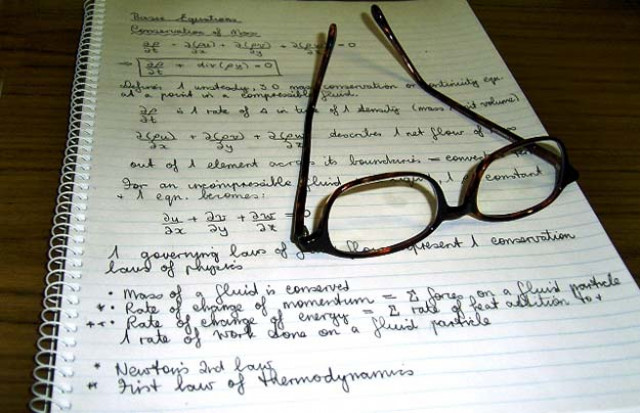 Basic Equations
Conservation of Mass
∂ρ/∂t + ∂(ρu)/∂x + ∂(ρv)/∂y + ∂(ρw)/∂z = 0
⇒ ∂ρ/∂t + div(ρu) = 0
Defines 1 unsteady, 3D mass conservation or continuity eqn.
at a point in a compressible fluid.
∂ρ/∂t is 1 rate of Δ in t of 1 density (mass volume)
∂(ρu)/∂x + ∂(ρv)/∂y + ∂(ρw) describes 1 net flow of
out of 1 element across its boundaries =
For an incompressible fluid 1 constant
+ 1 eqn. becomes:
∂u/∂x + ∂v/∂y + ∂w/∂z = 0
1 governing laws of flow represent 1 conservation
laws of physics
• Mass of a fluid is conserved
*• Rate of change of momentum = Σ forces on a fluid particle
**• Rate of change of energy = Σ rate of heat addition to +
1 rate of work done on a fluid particle
* Newton's 2nd law
** First law of thermodynamics